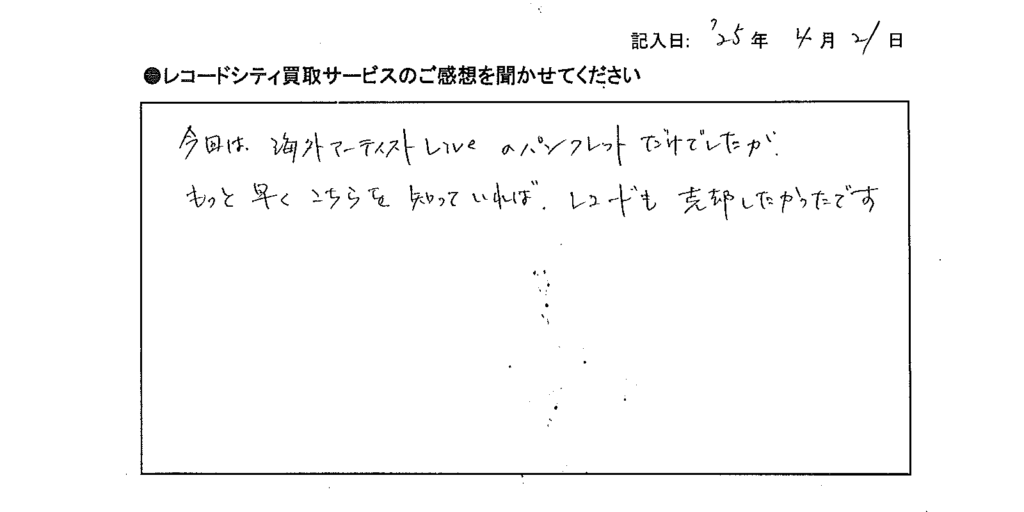 記入日: '25年 4月 21日
●レコードシティ買取サービスのご感想を聞かせてください
今回は、海外アーティストLiveのパンフレットだけでしたが、
もっと早くこちらを知っていれば、レコードも売却したかったです